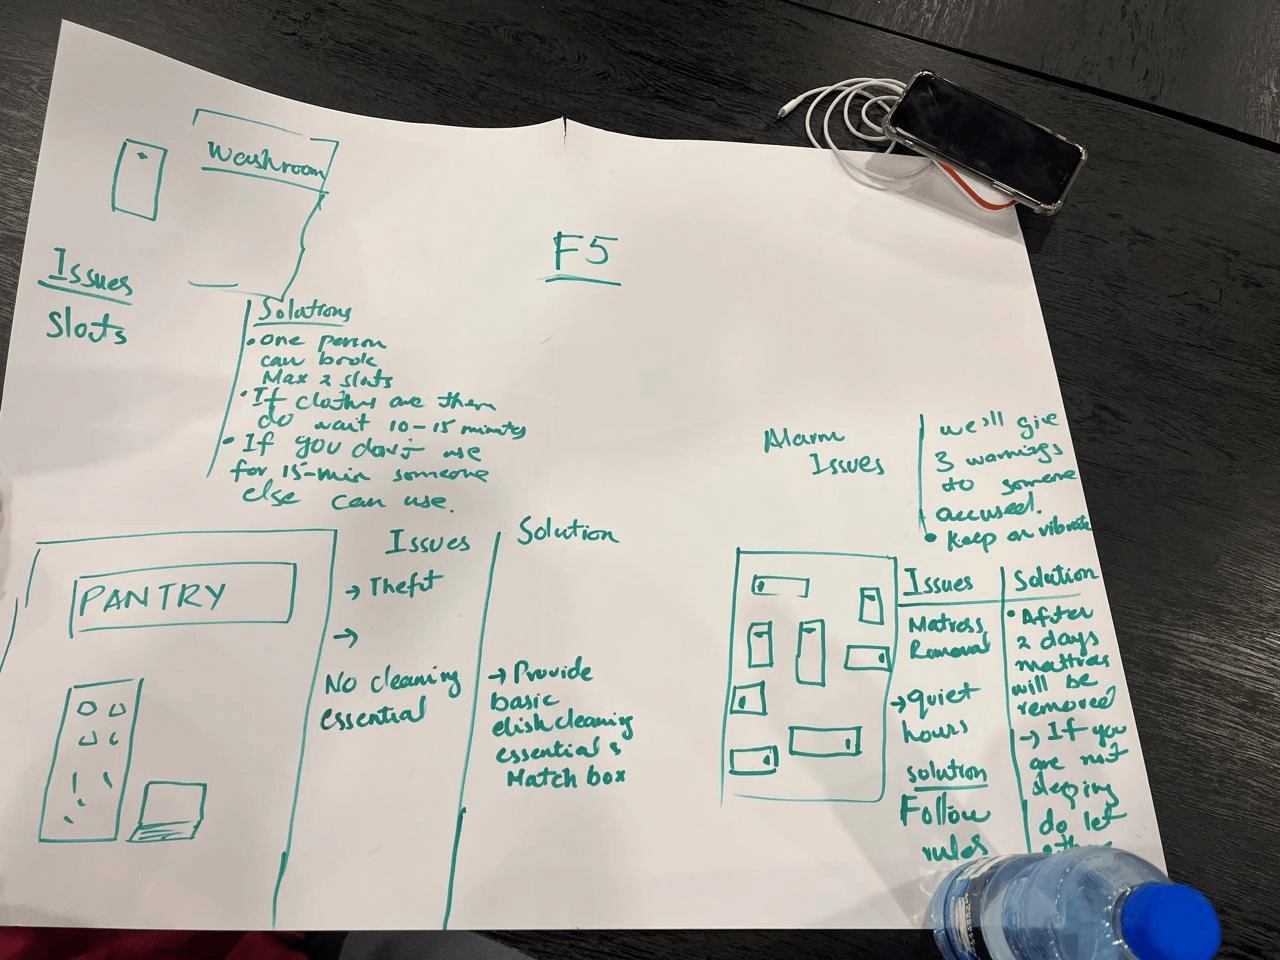 Washroom
F5
Issues
Slots
Solutions
• One person
can book
Max 2 slots
• If clothes are there
do wait 10-15 minutes
• If you don't use
for 15-min someone
else can use.
PANTRY
Issues
→ Theft
→
No cleaning
essential
Solution
→ Provide
basic
dishcleaning
essentials
Match box
Alarm
Issues
we'll give
3 warnings
to someone
accused.
• Keep on vibrate
Issues
Matress
Removal
→ quiet
hours
solution
Follow
rules
Solution
• After
2 days
mattress
will be
removed
→ If you
are not
sleeping
do let